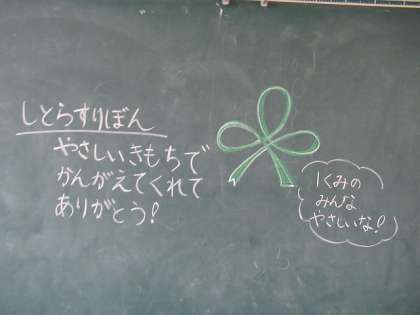 しとらすりぼん
やさしいきもちで
かんがえてくれて
ありがとう!
1くみの
みんな
やさしいな!